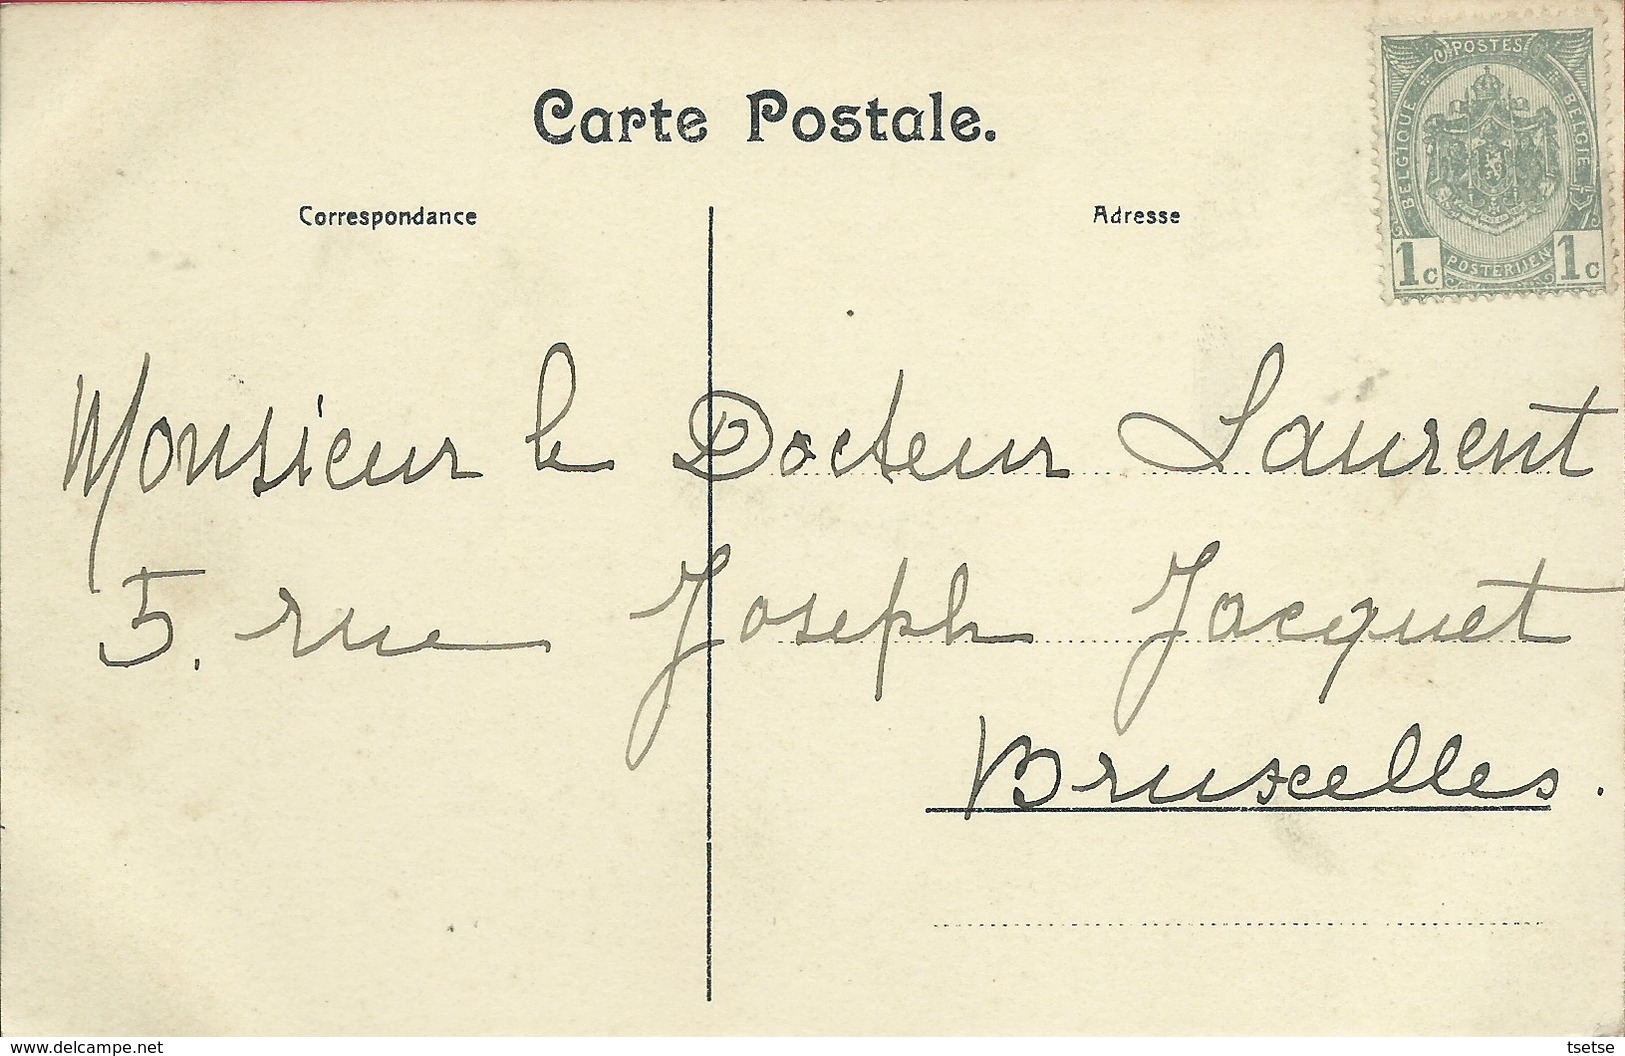 Carte Postale.
POSTES
BELGIQUE
BELGIE
1c
POSTERIJEN
1c
Correspondance
Adresse
Monsieur le Docteur Laurent
5. rue Joseph Jacquet
Bruxelles.
www.delcampe.net
tsetse